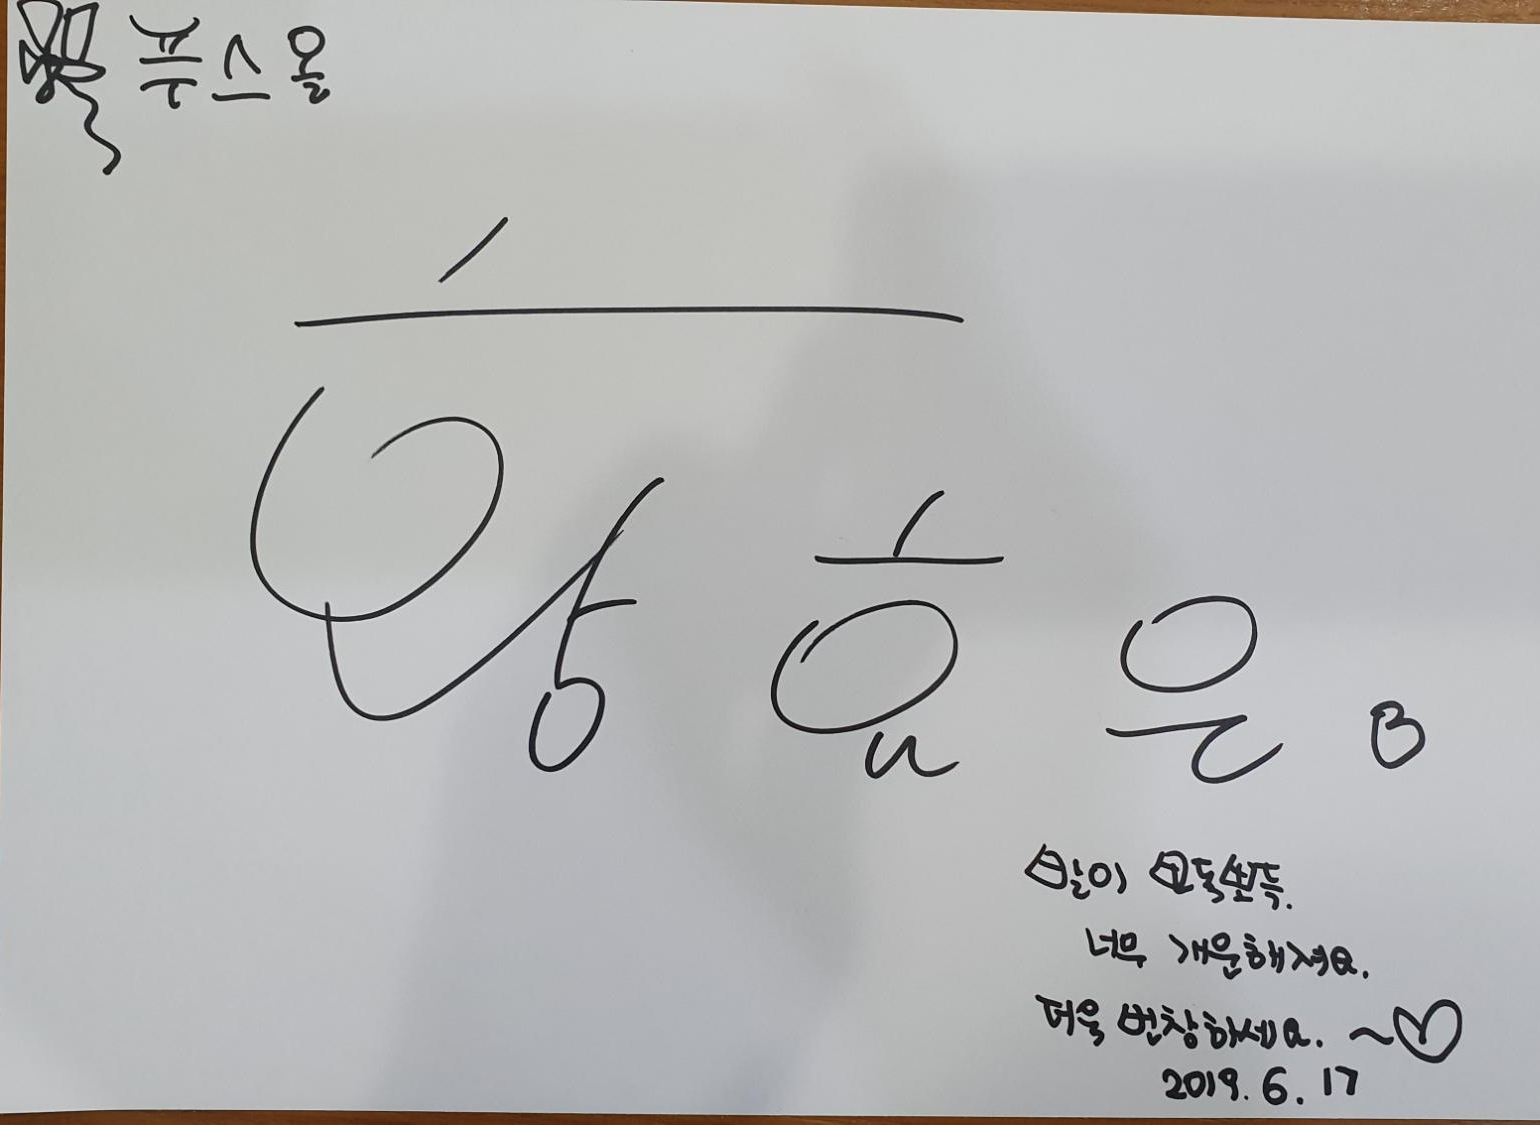 푸스올
황효은
발이 뽀득뽀득.
너무 개운해져요.
더욱 번창하세요. ~♡
2019. 6. 17